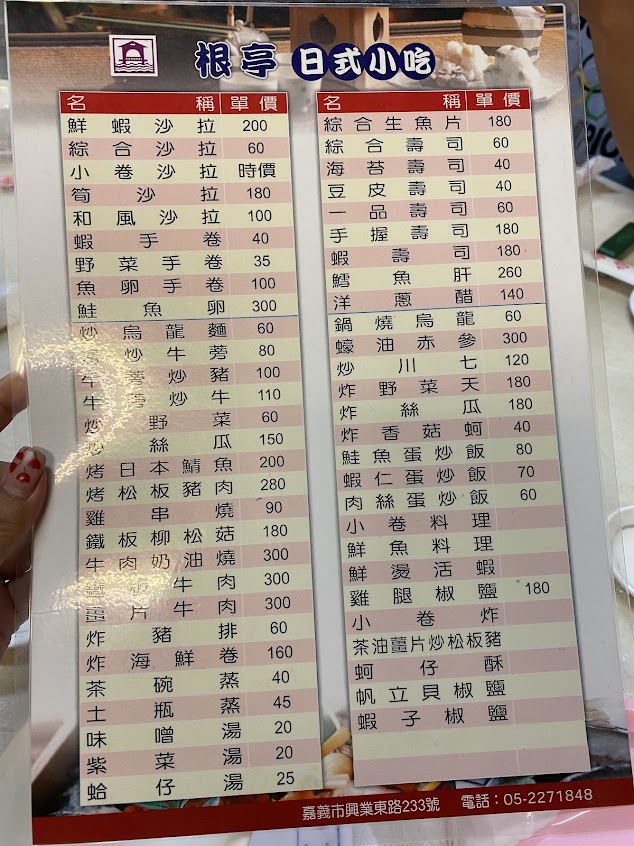 根亭 日式小吃
名稱 單價
鮮蝦沙拉 200
綜合沙拉 60
小卷沙拉 時價
筍沙拉 180
和風沙拉 100
蝦手卷 40
野菜手卷 35
魚卵手卷 100
鮭魚卵 300
炒烏龍麵 60
炒牛蒡 80
牛蒡炒豬 100
牛蒡炒牛 110
炒野菜 60
炒絲瓜 150
烤日本鯖魚 200
烤松板豬肉 280
雞串燒 90
鐵板柳松菇 180
牛肉奶油燒 300
鐵板牛肉 300
薑片牛肉 300
炸豬排 60
炸海鮮卷 160
茶碗蒸 40
土瓶蒸 45
味噌湯 20
紫菜湯 20
蛤仔湯 25
名稱 單價
綜合生魚片 180
綜合壽司 60
海苔壽司 40
豆皮壽司 40
一品壽司 60
手握壽司 180
蝦壽司 180
鱈魚肝 260
洋蔥醋 140
鍋燒烏龍 60
蠔油赤參 300
炒川七 120
炸野菜天 180
炸絲瓜 180
炸香菇蚵 40
鮭魚蛋炒飯 80
蝦仁蛋炒飯 70
肉絲蛋炒飯 60
小卷料理
鮮魚料理
鮮燙活蝦
雞腿椒鹽 180
小卷炸
茶油薑片炒松板豬
蚵仔酥
帆立貝椒鹽
蝦子椒鹽
嘉義市興業東路233號 電話：05-2271848